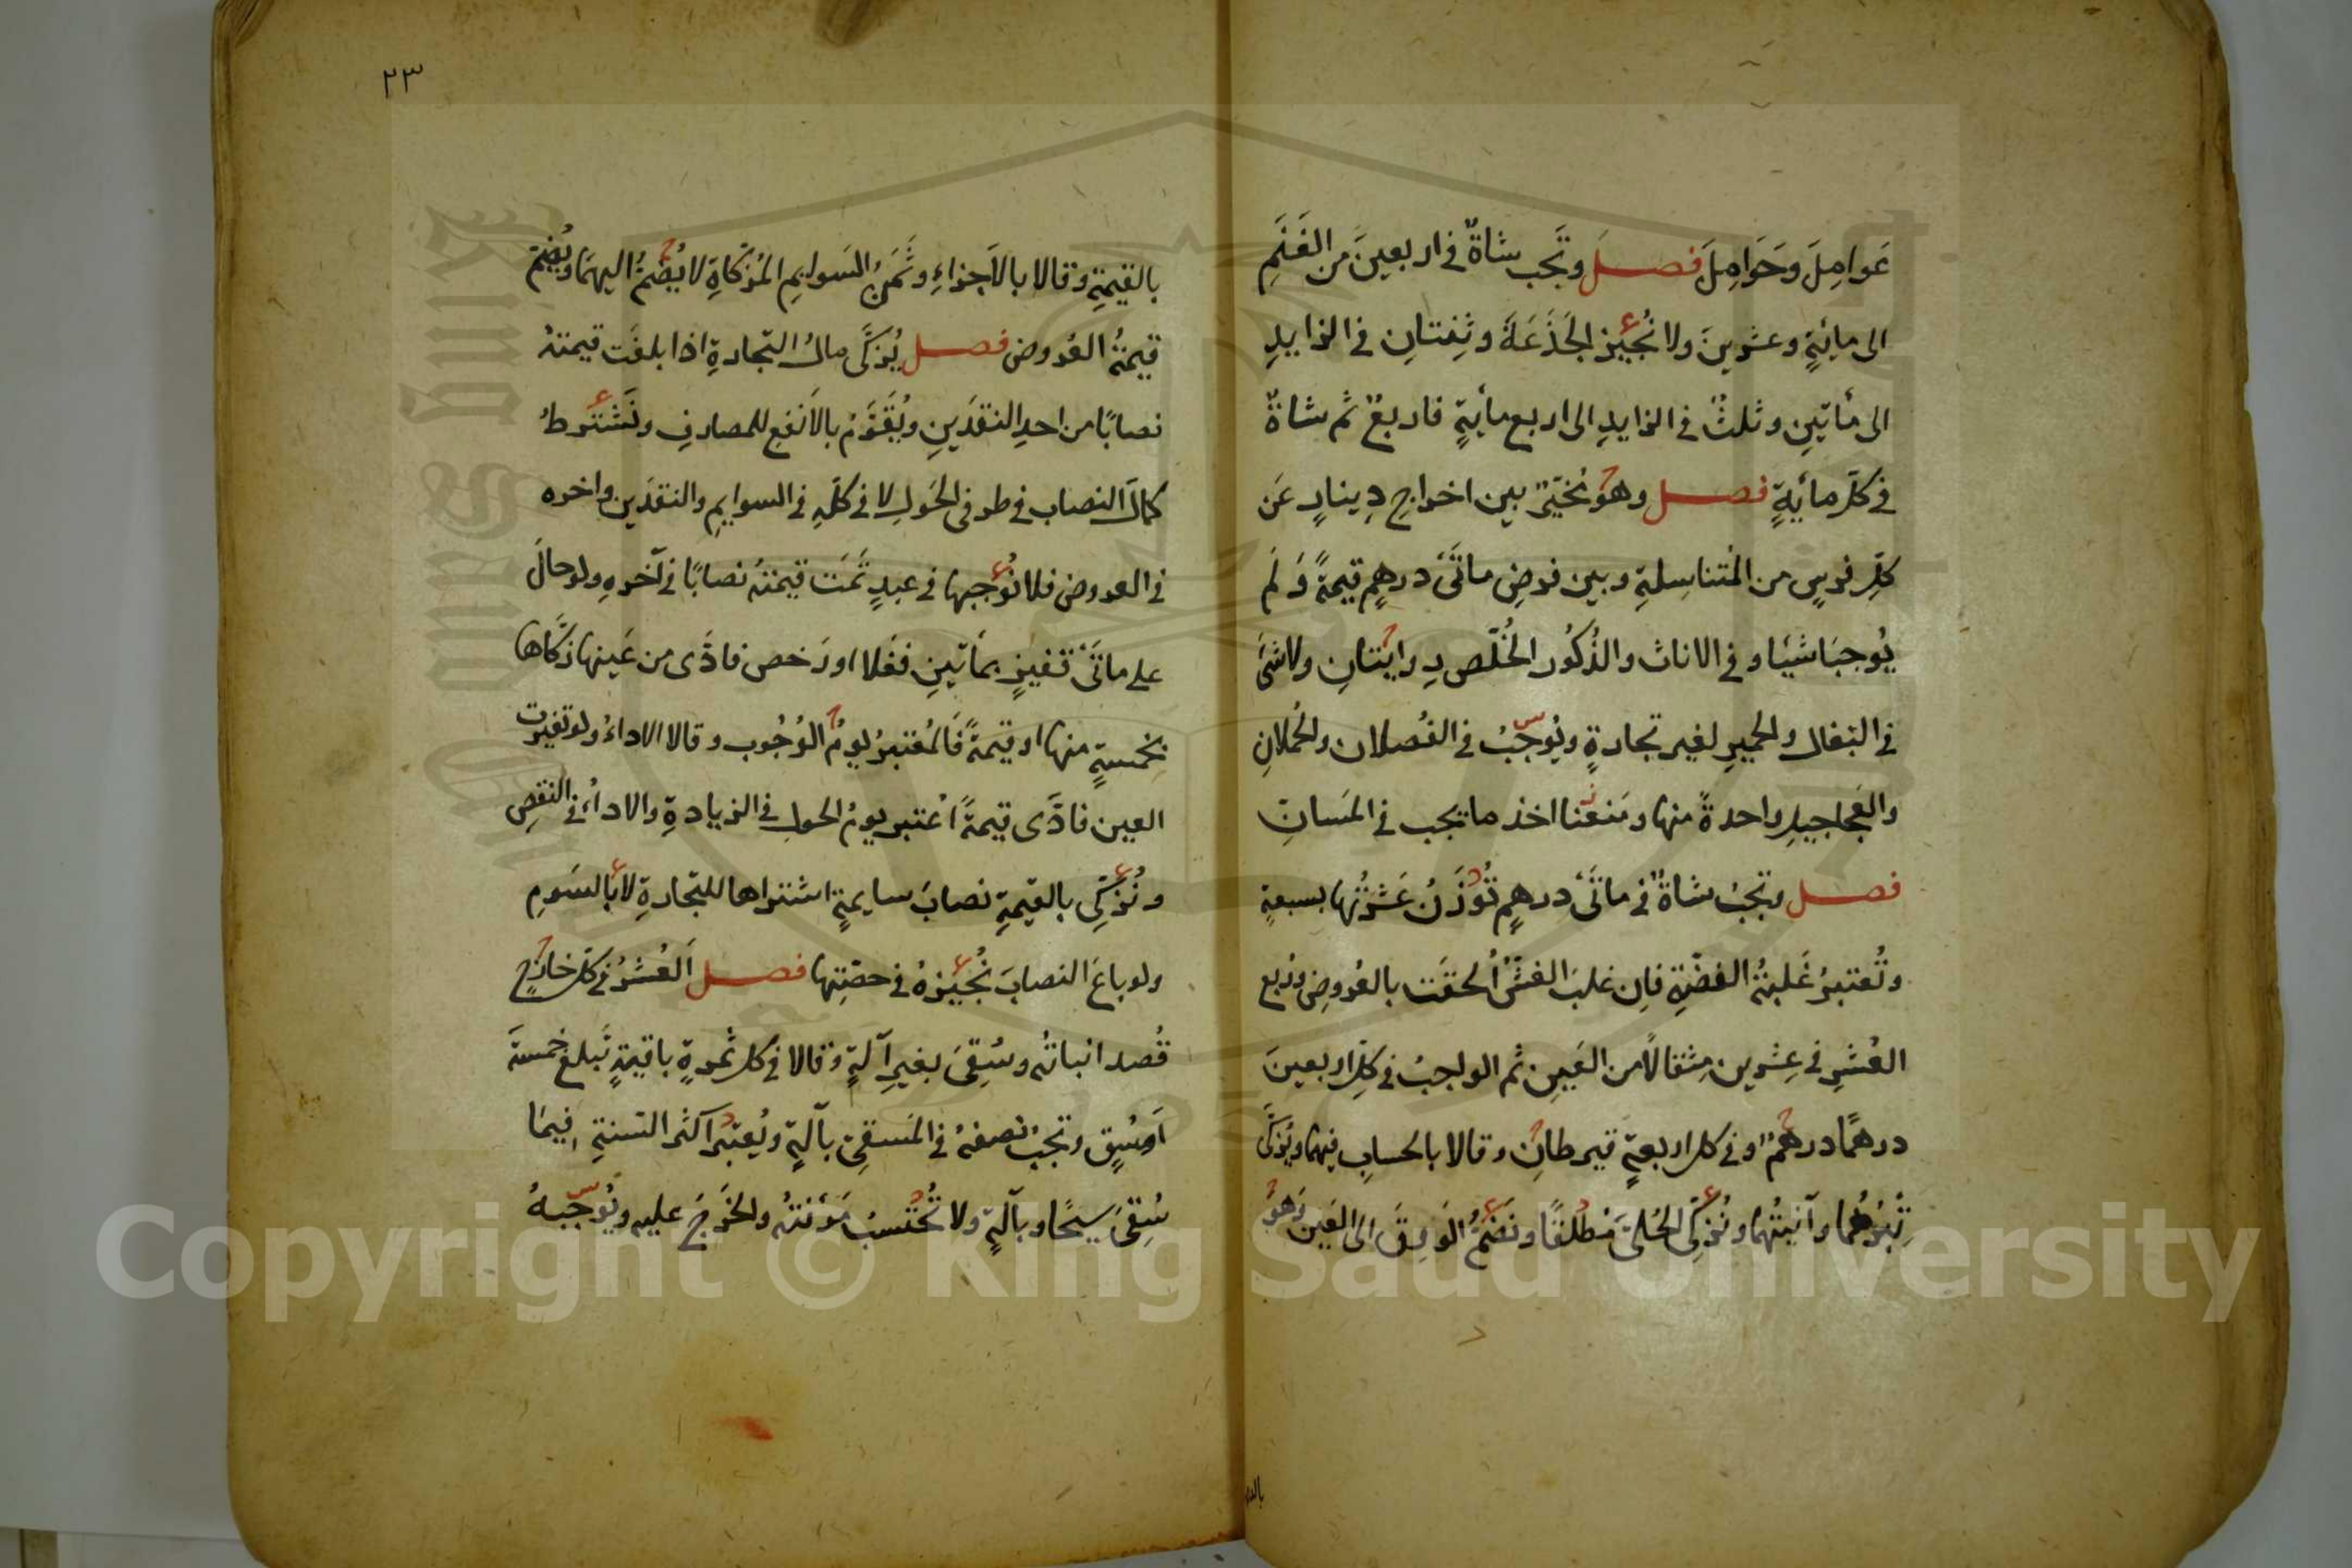 عَوامِلَ وَحَوَامِلَ فصل وتَجب شاةٌ في اربعينَ من الغَنَمِ
الى مائةٍ وعشرينَ ولا نُجيز الجَذَعَةَ وثِنتانِ في الزايدِ
الى مأتين وثلثٌ في الزايدِ الى اربع مأيةٍ فاربعٌ ثم شاةٌ
في كلّ مأيةٍ فصل وهو مُخيّرٌ بين اخراجِ دِينارٍ عَن
كلِّ فرسٍ من المُتناسِلةِ وبين فرضِ مائتَى درهمٍ قيمةً وَلَم
يُوجبَا شيئا وفي الاناث والذُكُور الخُلّص رِوايتانِ ولا شئَ
في البغال والحميرِ لغير تجارةٍ ويُوجّبُ في الفُصلان والحُملانِ
والعَجاجيلِ واحدةً منها ومَنعْنا اخذ ما يجب في المَسانِ
فصل وتجبُ شاةٌ في مائتَى درهمٍ تُوزَنُ عَشرَتُها بسبعةٍ
وتُعتبرُ غَلبةُ الفضّةِ فاِن غلبَ الغشُّ اُلحقَت بالعُروضِ ورُبع
العُشرِ في عِشرين مِثقالاً من العَينِ ثم الواجبُ في كلِّ اربعينَ
درهمًا درهمٌ وفي كل اربعةٍ قيرطانِ وقالا بالحسابِ فيهما ويُزكَّى
تِبرُهُما وآنيتُهما ونُزكِّى الحُلىَّ مُطلقًا ونَضمُّ الوَرِقَ الى العَين وهوُ
بالقـ
٢٣
بالقيمةِ وقالا بالاَجزاءِ وثَمَنُ السَوايمِ المُزكّاةِ لا يُضَمُّ اليهمَا ويُضمّ
قيمةُ العُروض فصل يُزكَّى مالُ التّجارةِ اذا بلغَت قيمتهُ
نصابًا من احدِ النقدَينِ ويُقَوَّمُ بالاَنفعِ للمصارفِ ونَشترطُ
كمالَ النصاب في طرفى الحَولِ لا في كلّهِ في السوايمِ والنقدَين واخره
في العروض فلا نُوجبها في عبدٍ تَمّت قيمتهُ نصابًا في آخرهِ ولو حالَ
على مائتَىْ قفيزٍ بمأتينِ فغلا او رَخص فادَّى من عَينها زكَّاها
بخمسةٍ منها او قيمةً فَالمُعتبرُ يومُ الوُجُوب وقالا الاداءُ ولو تغيرت
العين فادَّى قيمةً اُعتبر يومُ الحولِ في الزيادةِ والاداءُ في النقصِ
ونُزكِّى بالقيمةِ نصابَ سايمةٍ اشتراها للتجارةِ لا بالسَومِ
ولو باعَ النصابَ نُجيزهُ في حصّتِها فصل اَلعُشرُ في كل خارجٍ
قُصد انباتُه وسُقِىَ بغيرِ آلةٍ وقالا في كل ثمرةٍ باقيةٍ تَبلغ خمسةَ
اَوسُقٍ وتجبُ نصفهُ في المَسقِىّ بآلةٍ ويُعتبرُ اكثر السَنةِ فيمَا
سُقِىَ سيحًا وبآلةٍ ولا تُحتسبُ مَؤنتهُ والخَرجُ عليه ويُوجّبهُ